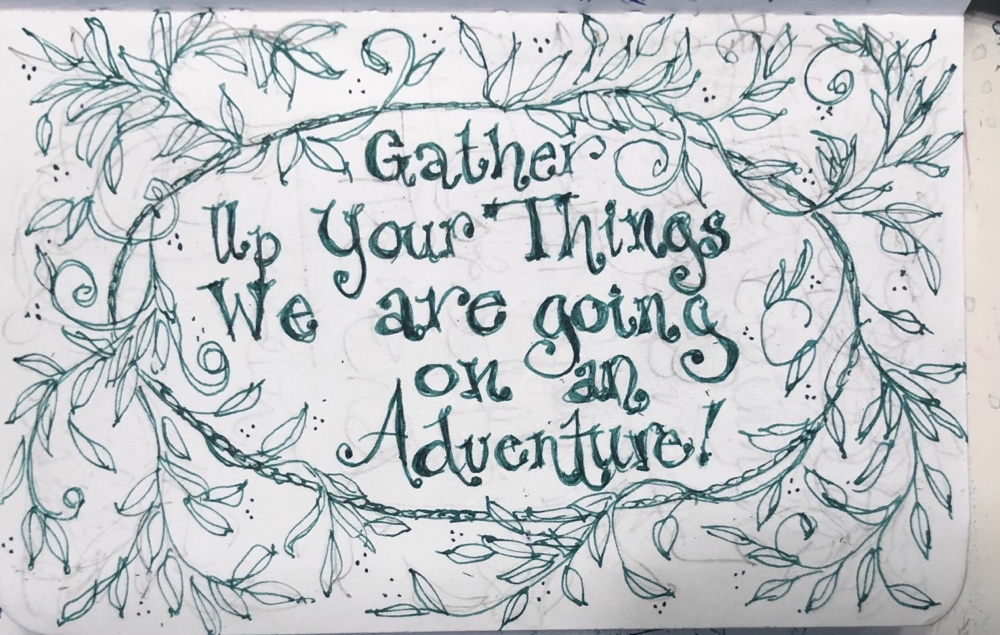 Gather
Up Your Things
We are going
on an
Adventure!